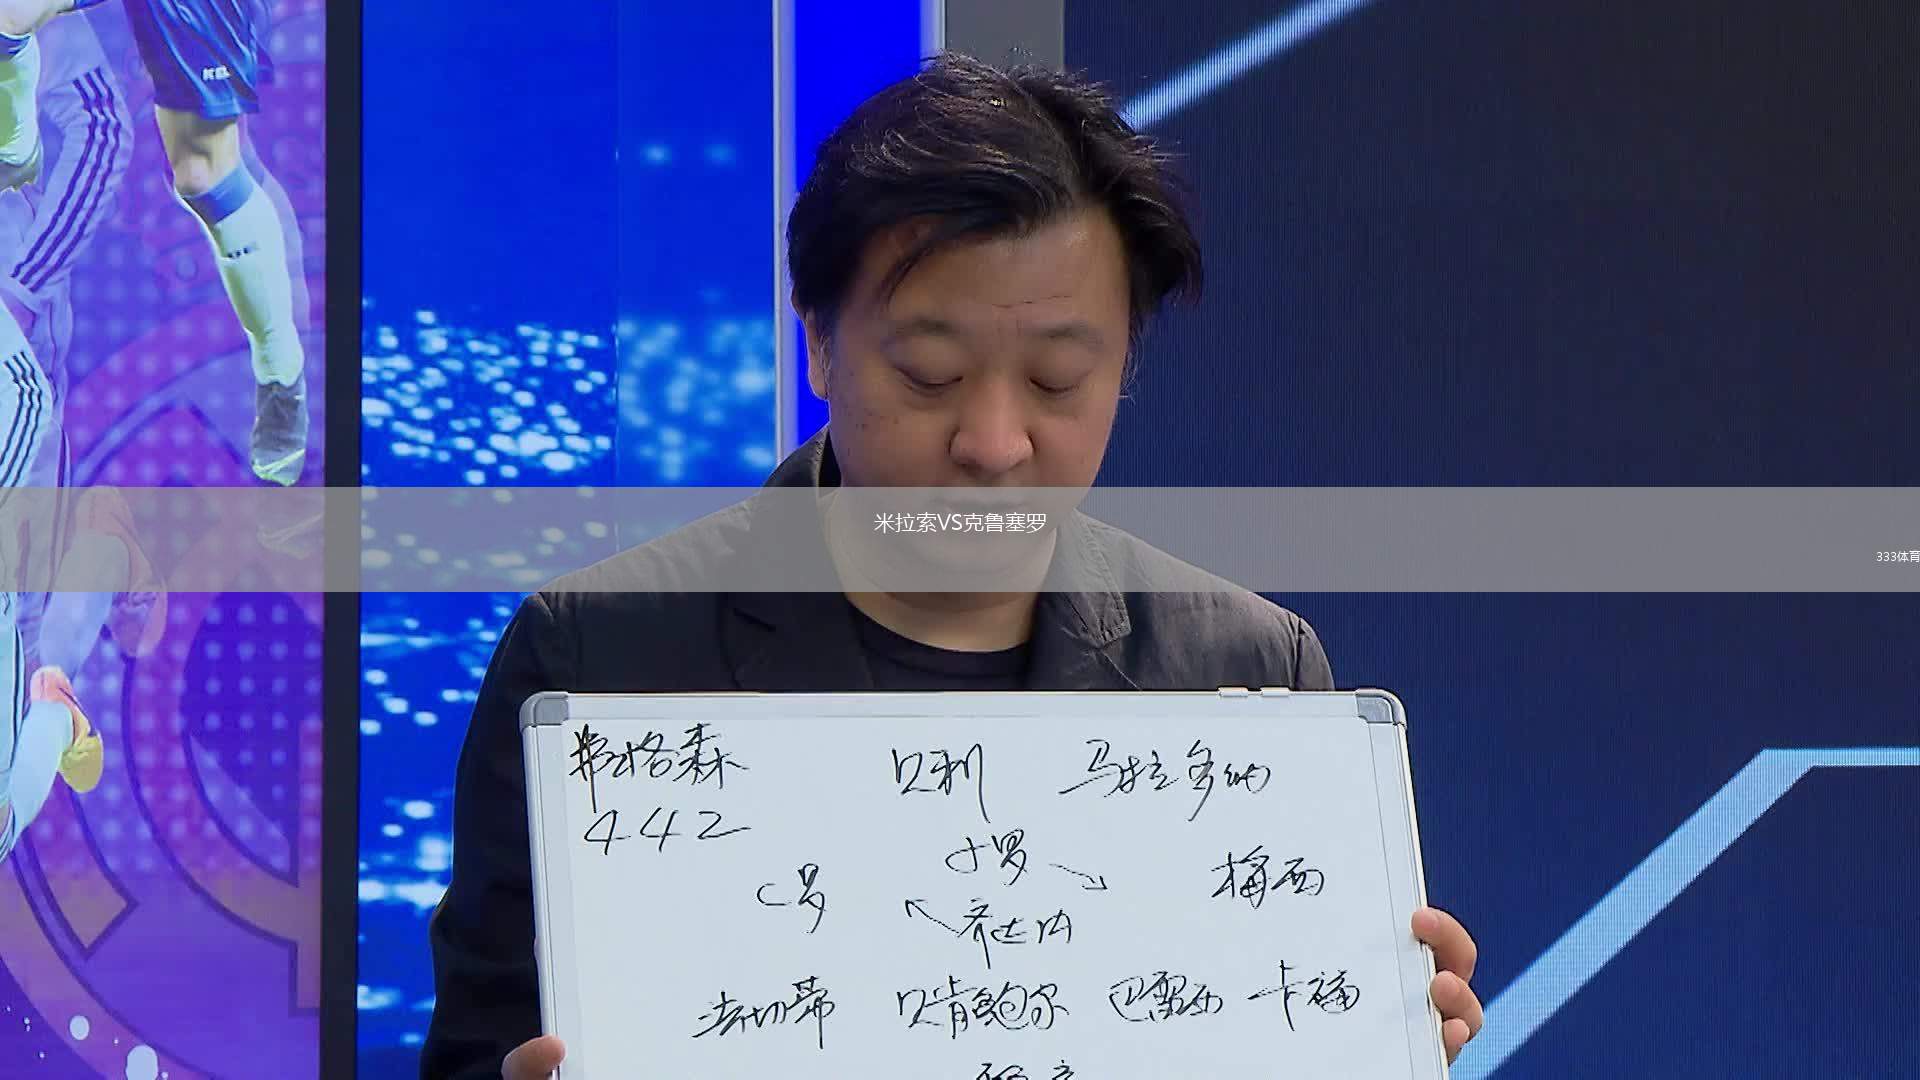 米拉索VS克鲁塞罗
333体育
弗格森 贝利 马拉多纳
442
小罗
C罗 梅西
齐达内
法切蒂 贝肯鲍尔 巴雷西 卡福